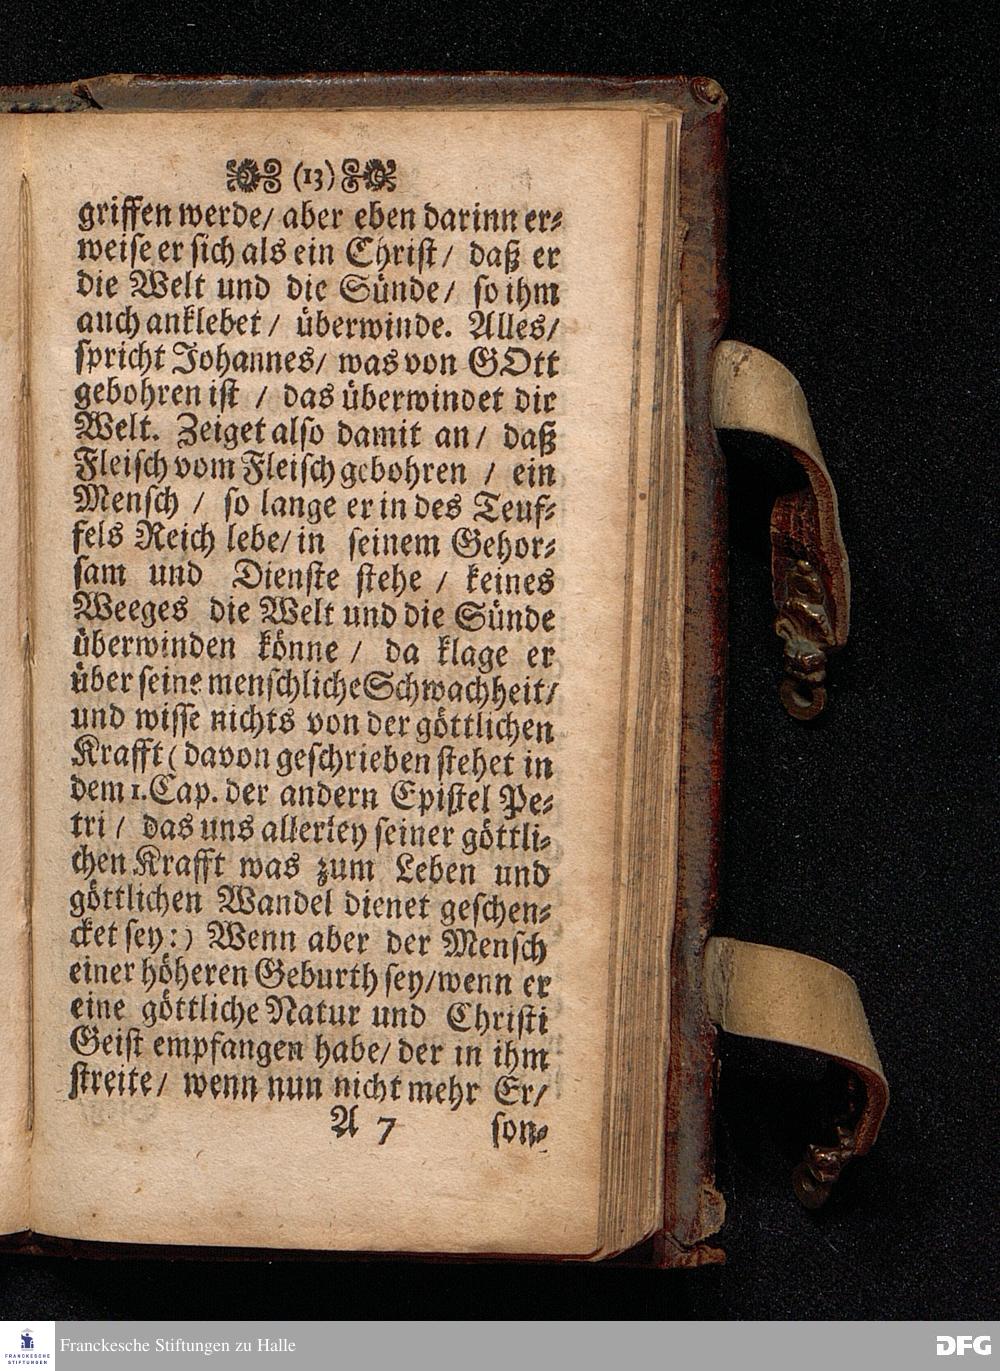 (13)
griffen werde/ aber eben darinn er⸗
weise er sich als ein Christ/ daß er
die Welt und die Sünde/ so ihm
auch anklebet/ überwinde. Alles/
spricht Johannes/ was von GOtt
gebohren ist / das überwindet die
Welt. Zeiget also damit an/ daß
Fleisch vom Fleisch gebohren / ein
Mensch / so lange er in des Teuf⸗
fels Reich lebe/ in seinem Gehor⸗
sam und Dienste stehe / keines
Weeges die Welt und die Sünde
überwinden könne / da klage er
über seine menschliche Schwachheit/
und wisse nichts von der göttlichen
Krafft (davon geschrieben stehet in
dem 1. Cap. der andern Epistel Pe⸗
tri / das uns allerley seiner göttli⸗
chen Krafft was zum Leben und
göttlichen Wandel dienet geschen⸗
cket sey:) Wenn aber der Mensch
einer höheren Geburth sey/ wenn er
eine göttliche Natur und Christi
Geist empfangen habe/ der in ihm
streite/ wenn nun nicht mehr Er/
A 7 son⸗
Franckesche Stiftungen zu Halle
FRANCKESCHE STIFTUNGEN
DFG